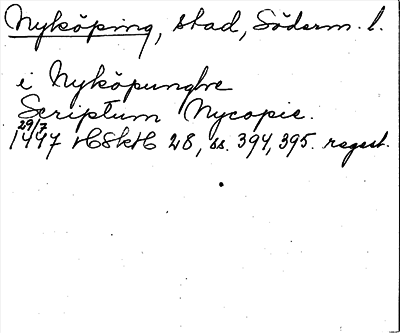 Nyköping, stad, Söderm. l.
i Nyköpunghe
Scriptum Nycopie.
29/7
1447 HSkH 28, ss. 394, 395. regest.